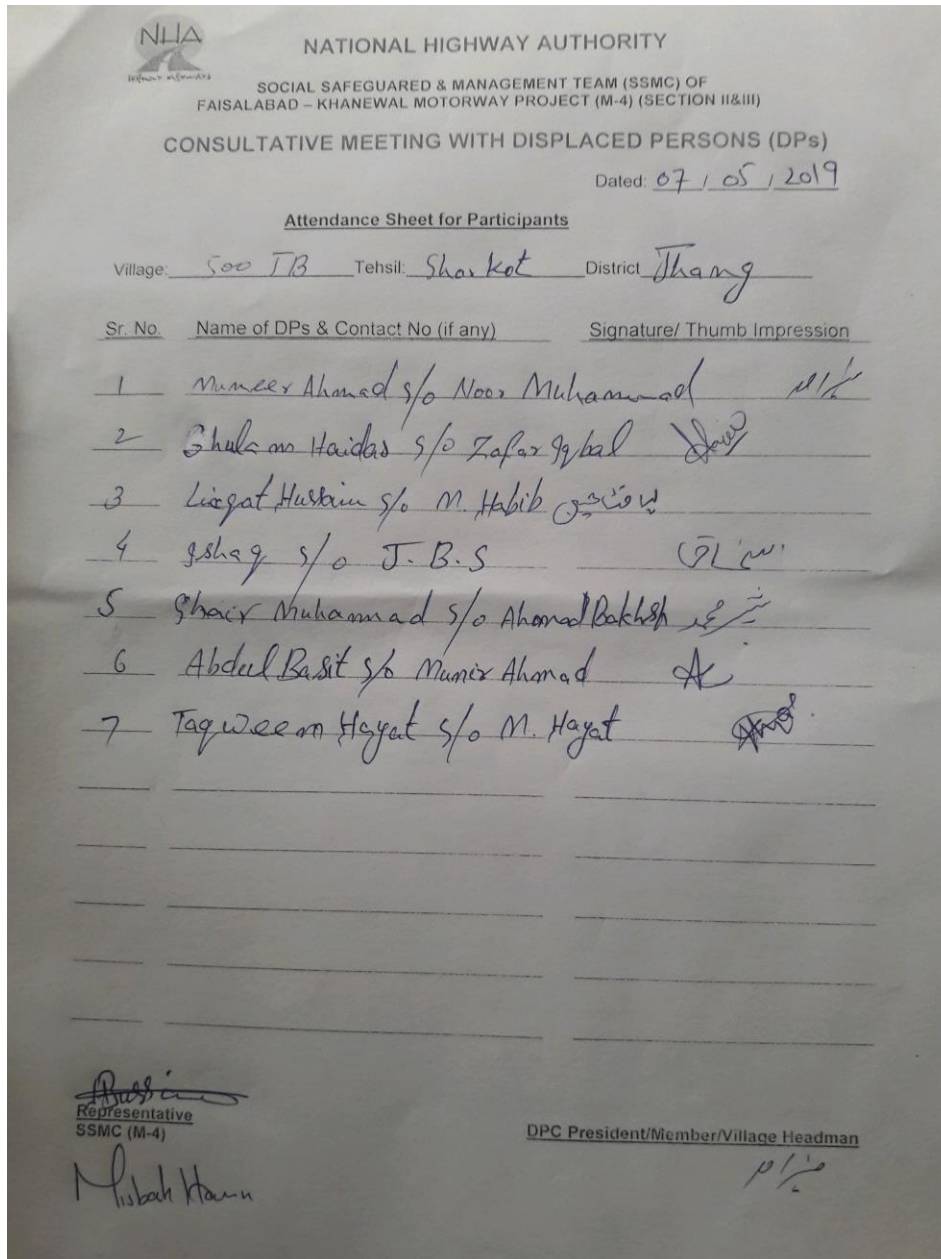 NHA
NATIONAL HIGHWAY AUTHORITY
SOCIAL SAFEGUARED & MANAGEMENT TEAM (SSMC) OF
FAISALABAD – KHANEWAL MOTORWAY PROJECT (M-4) (SECTION II&III)
CONSULTATIVE MEETING WITH DISPLACED PERSONS (DPs)
Dated: 07 / 05 / 2019
Attendance Sheet for Participants
Village: 500 JB Tehsil: Shorkot District Jhang
Sr. No. Name of DPs & Contact No (if any) Signature/ Thumb Impression
1 Muneer Ahmad s/o Noor Muhammad
2 Ghulam Haidar s/o Zafar Iqbal
3 Liaqat Hussain s/o M. Habib لیاقت حسین
4 Ishaq s/o J.B.S اسحاق
5 Shair Muhammad s/o Ahmad Bakhsh شیر محمد
6 Abdul Basit s/o Munir Ahmad
7 Taqweem Hayat s/o M. Hayat
Representative
SSMC (M-4)
DPC President/Member/Village Headman
Misbah